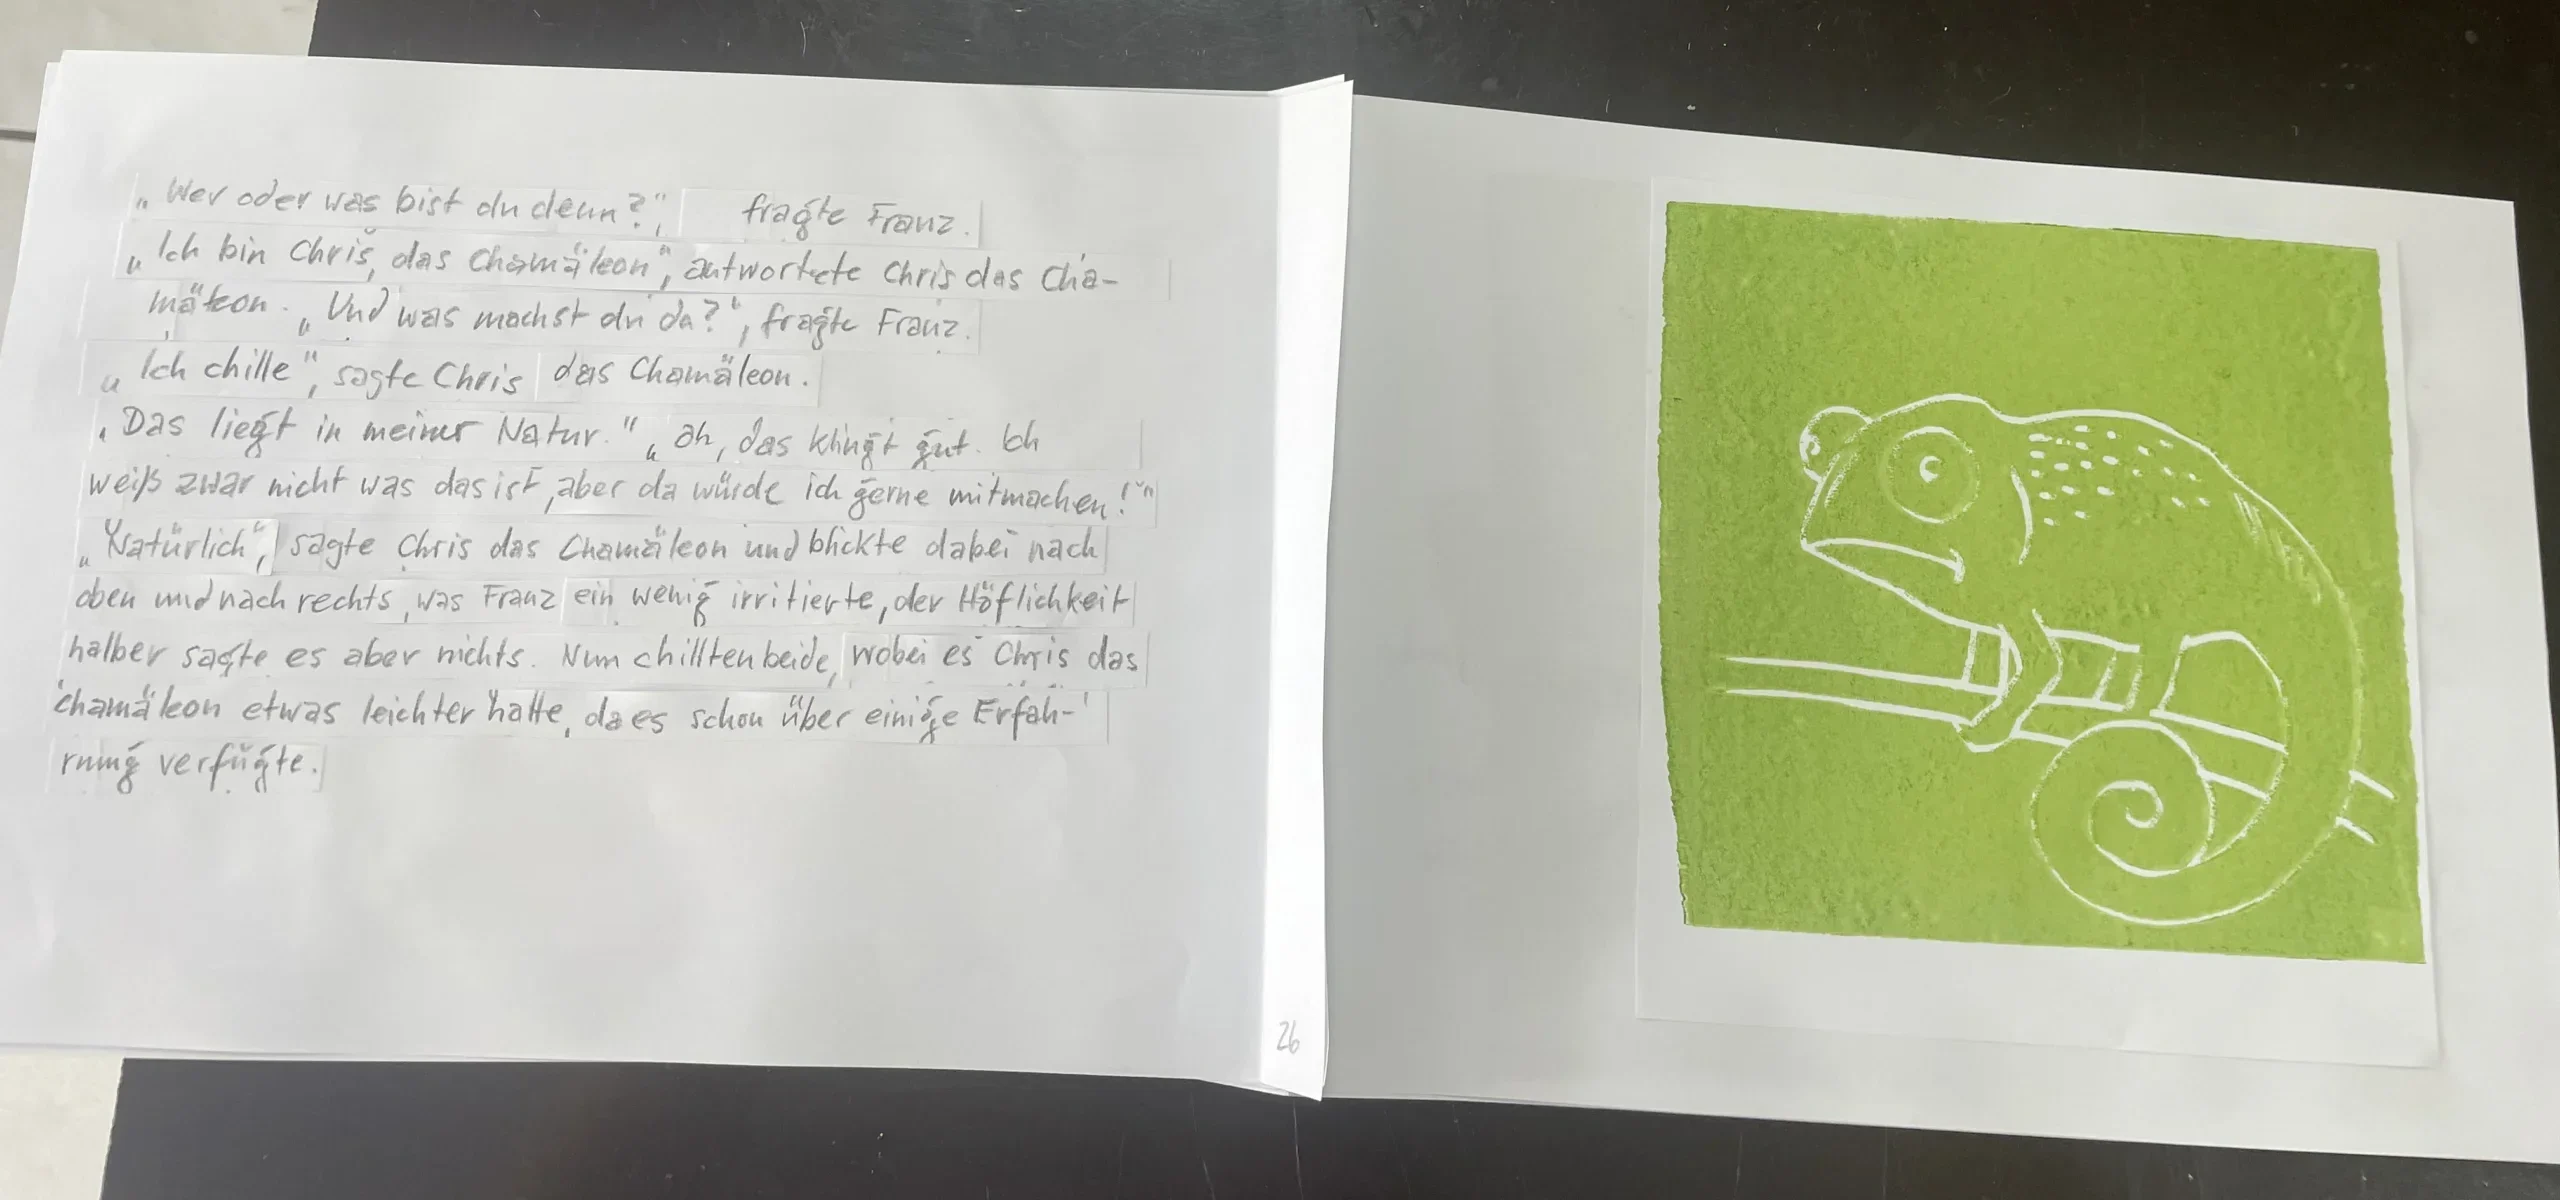 „Wer oder was bist du denn?", fragte Franz.
„Ich bin Chris, das Chamäleon", antwortete Chris das Cha-
mäleon. „Und was machst du da?", fragte Franz.
„Ich chille", sagte Chris das Chamäleon.
„Das liegt in meiner Natur." „Oh, das klingt gut. Ich
weiß zwar nicht was das ist, aber da würde ich gerne mitmachen!"
„Natürlich", sagte Chris das Chamäleon und blickte dabei nach
oben und nach rechts, was Franz ein wenig irritierte, der Höflichkeit
halber sagte es aber nichts. Nun chillten beide, wobei es Chris das
Chamäleon etwas leichter hatte, da es schon über einige Erfah-
rung verfügte.
26